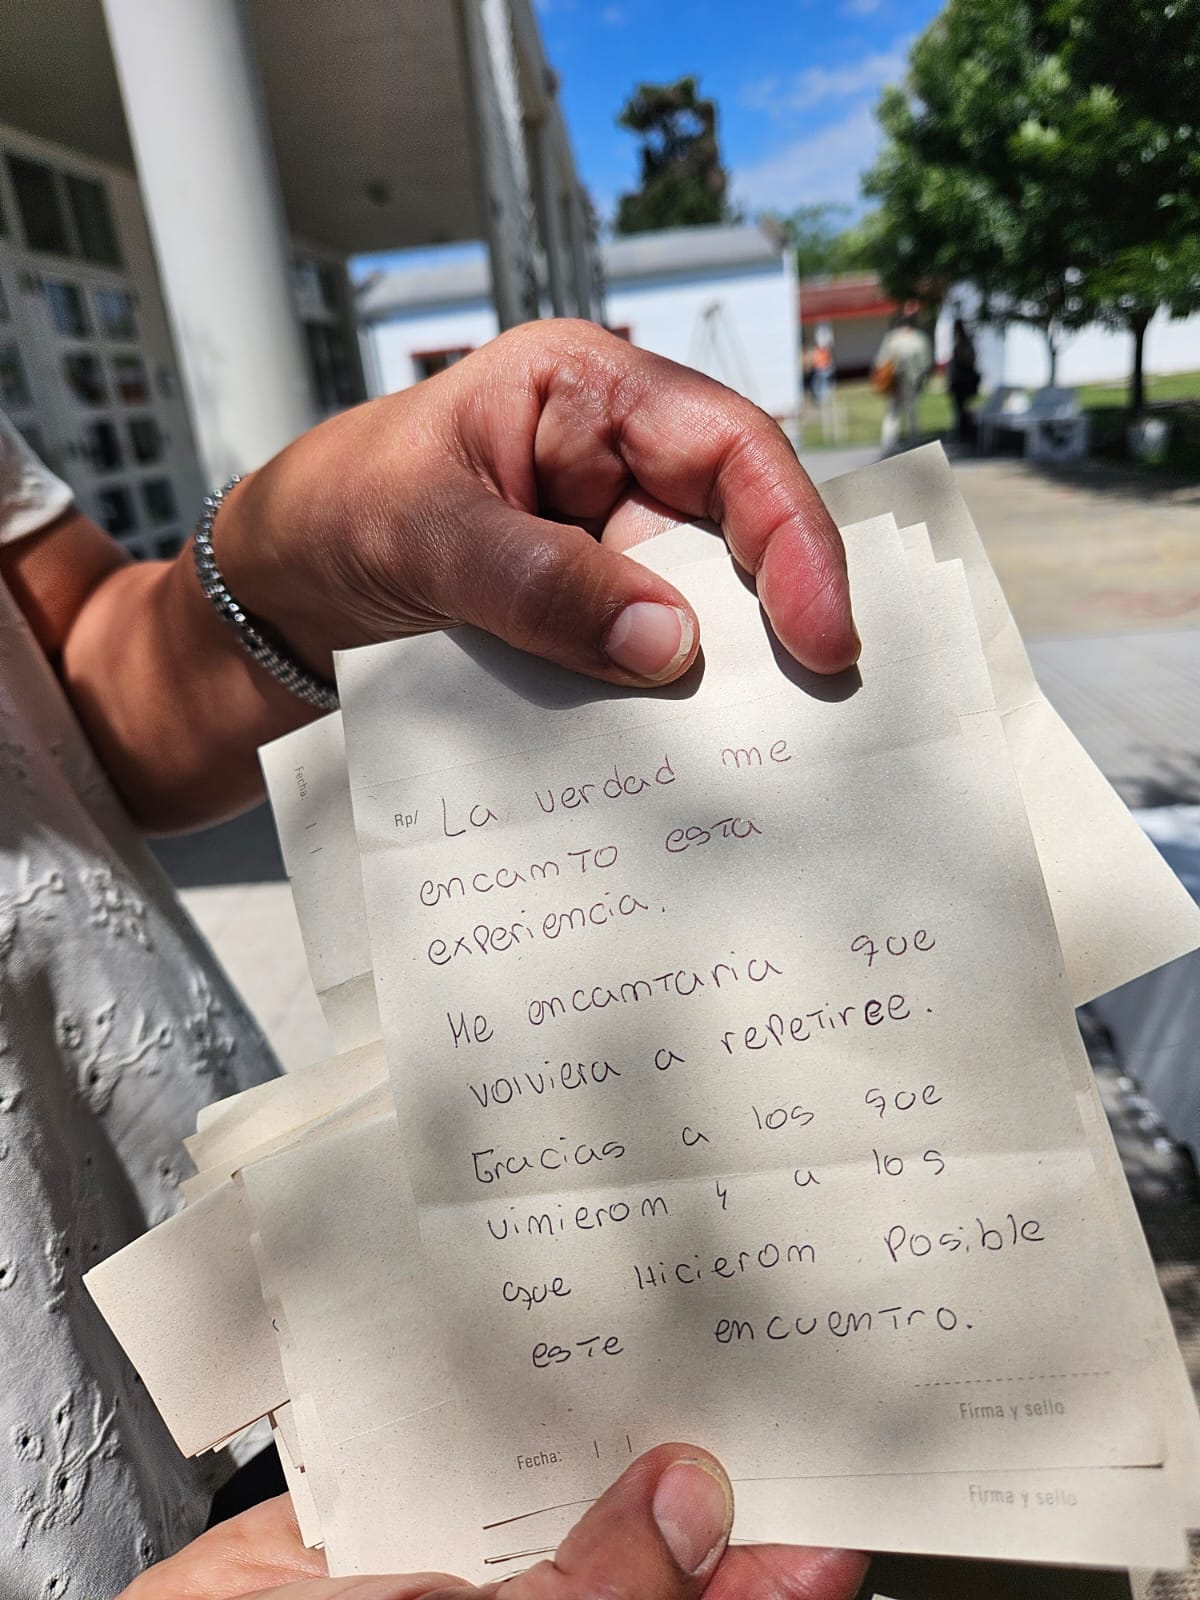 Fecha: / /
Rp/ La verdad me
encamto esta
experiemcia.
Me encamtaria que
volviera a repetiree.
Gracias a los que
vimierom y a los
que Hicierom Posible
este encuentro.
Firma y sello
Fecha: / /
Firma y sello